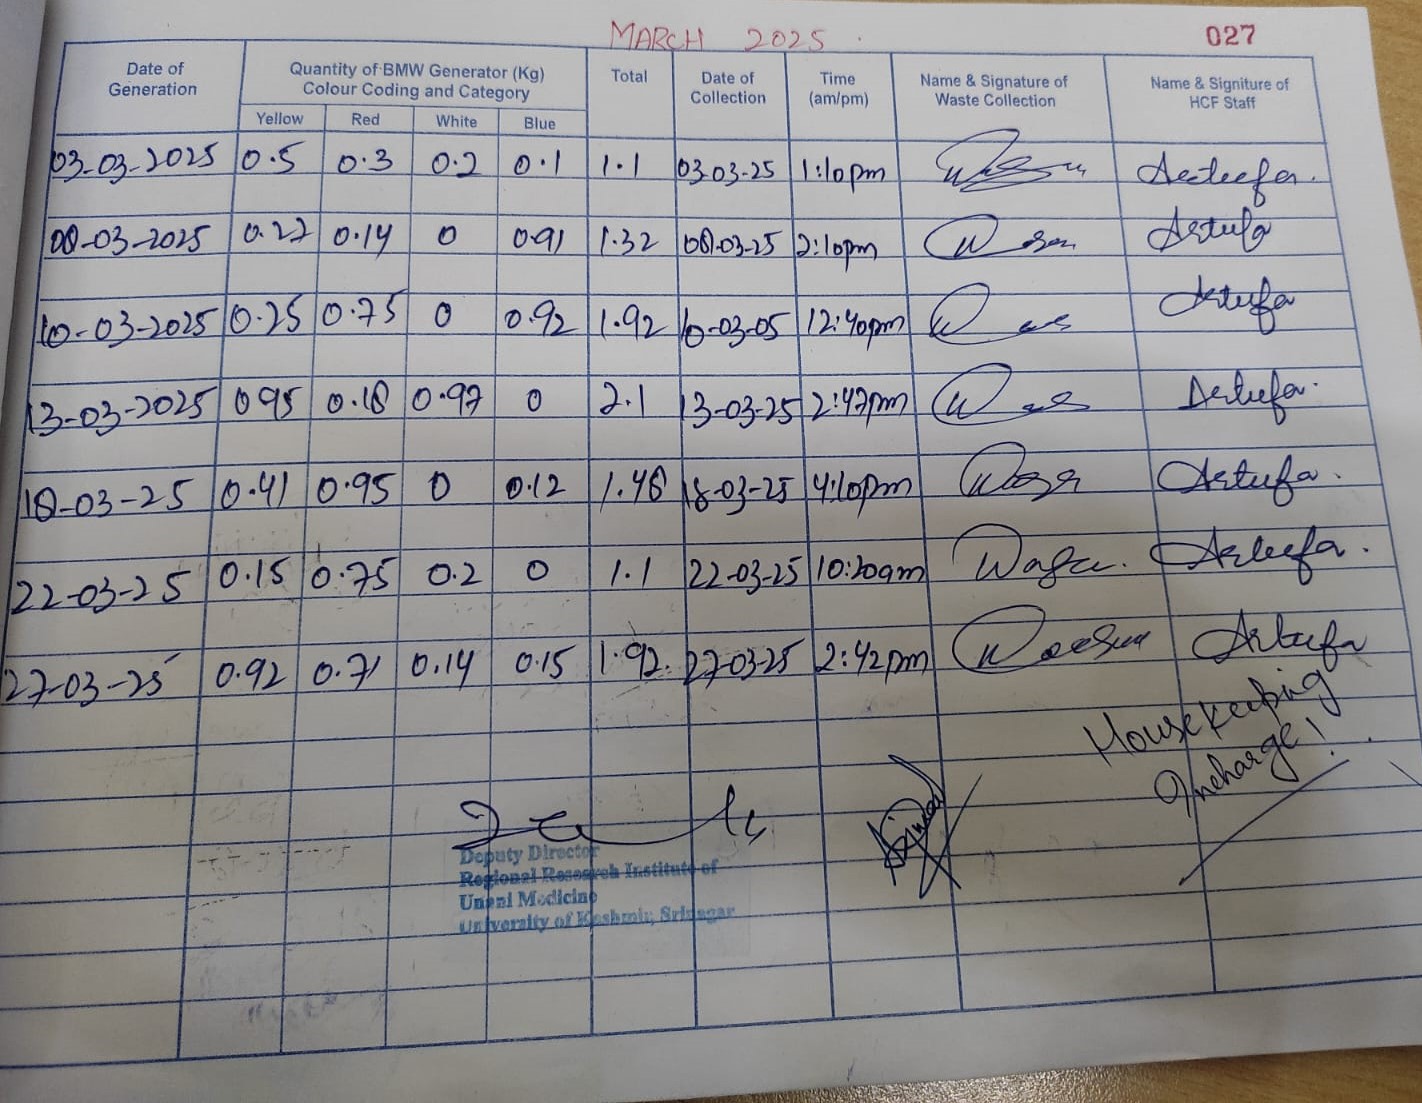 MARCH 2025.
027
Date of Generation Quantity of BMW Generator (Kg) Colour Coding and Category Total Date of Collection Time (am/pm) Name & Signature of Waste Collection Name & Signiture of HCF Staff
Yellow Red White Blue
03-03-2025 0.5 0.3 0.2 0.1 1.1 03-03-25 1:10pm
08-03-2025 0.27 0.14 0 0.91 1.32 08-03-25 2:10pm
10-03-2025 0.25 0.75 0 0.92 1.92 10-03-05 12:40pm
13-03-2025 0.95 0.18 0.97 0 2.1 13-03-25 2:47pm
18-03-25 0.41 0.95 0 0.12 1.48 18-03-25 4:10pm
22-03-25 0.15 0.75 0.2 0 1.1 22-03-25 10:20am
27-03-25 0.92 0.71 0.14 0.15 1.92. 27-03-25 2:42pm
Housekeeping
Incharge!
Deputy Director
Regional Research Institute of
Unani Medicine
University of Kashmir, Srinagar